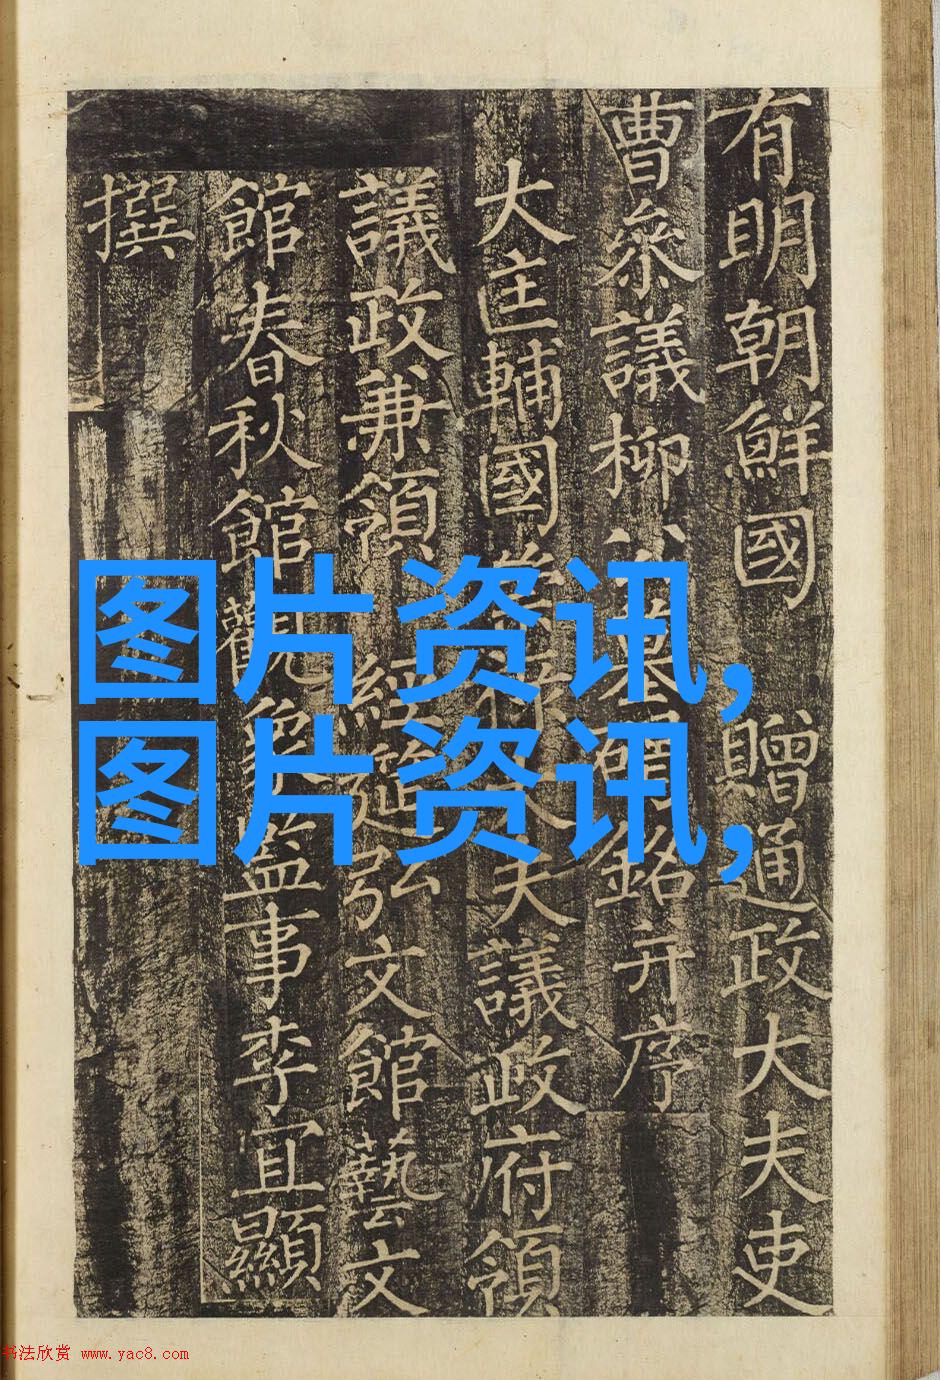 有明朝鮮國 贈通政大夫吏
曹叅議柳公墓碣銘并序
大匡輔國崇祿大夫議政府領
議政兼領 經筵弘文館藝文
館春秋館觀象監事李宜顯
撰
图片资讯,
图片资讯,
书法欣赏 www.yac8.com